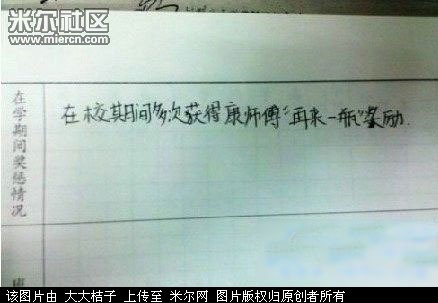 米尔社区
www.miercn.com
在学期间奖惩情况
在校其日间多次获得康师傅“再来一瓶”奖励.
该图片由 大大桔子 上传至 米尔网 图片版权归原创者所有